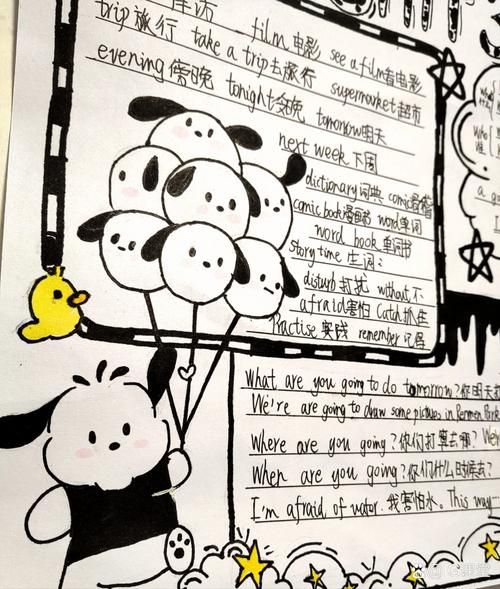 film电影 see a film看电影
trip旅行 take a trip去旅行 supermarket超市
evening傍晚 tonight今晚 tomorrow明天
next week下周
dictionary词典 comic滑稽的
comic book漫画书 word单词
word book 单词书
story time 生词:
disturb打扰 without不
afraid害怕 Catch抓住
Practise 实践 remember记得
What are you going to do tomorrow?你明天打
We're are going to draw some pictures in Renmin Park
Where are you going?你们打算去哪? We're
When are you going?你们什么时候去?
I'm afraid of water.我害怕水。This way